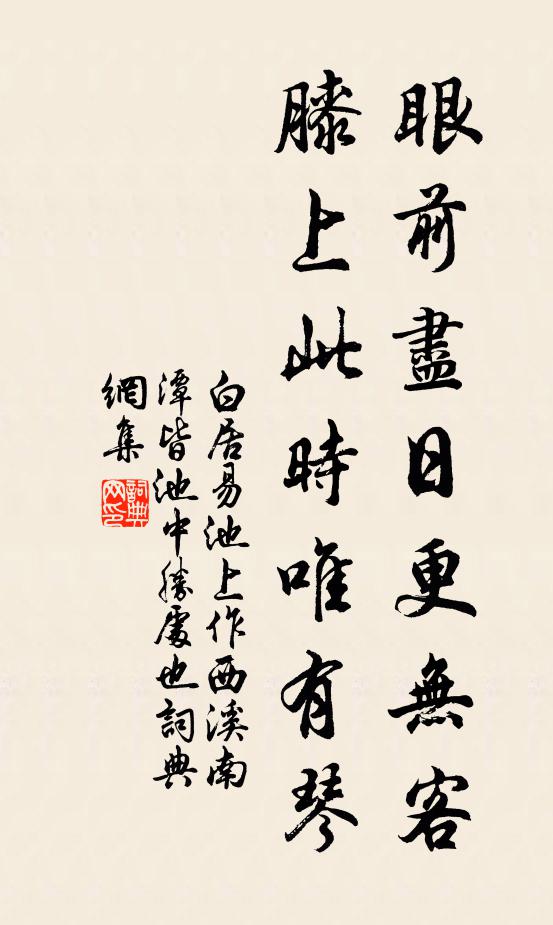 眼前盡日更無客
膝上此時唯有琴
白居易池上作西溪南
潭皆池中勝處也詞典
網集
詞典網印